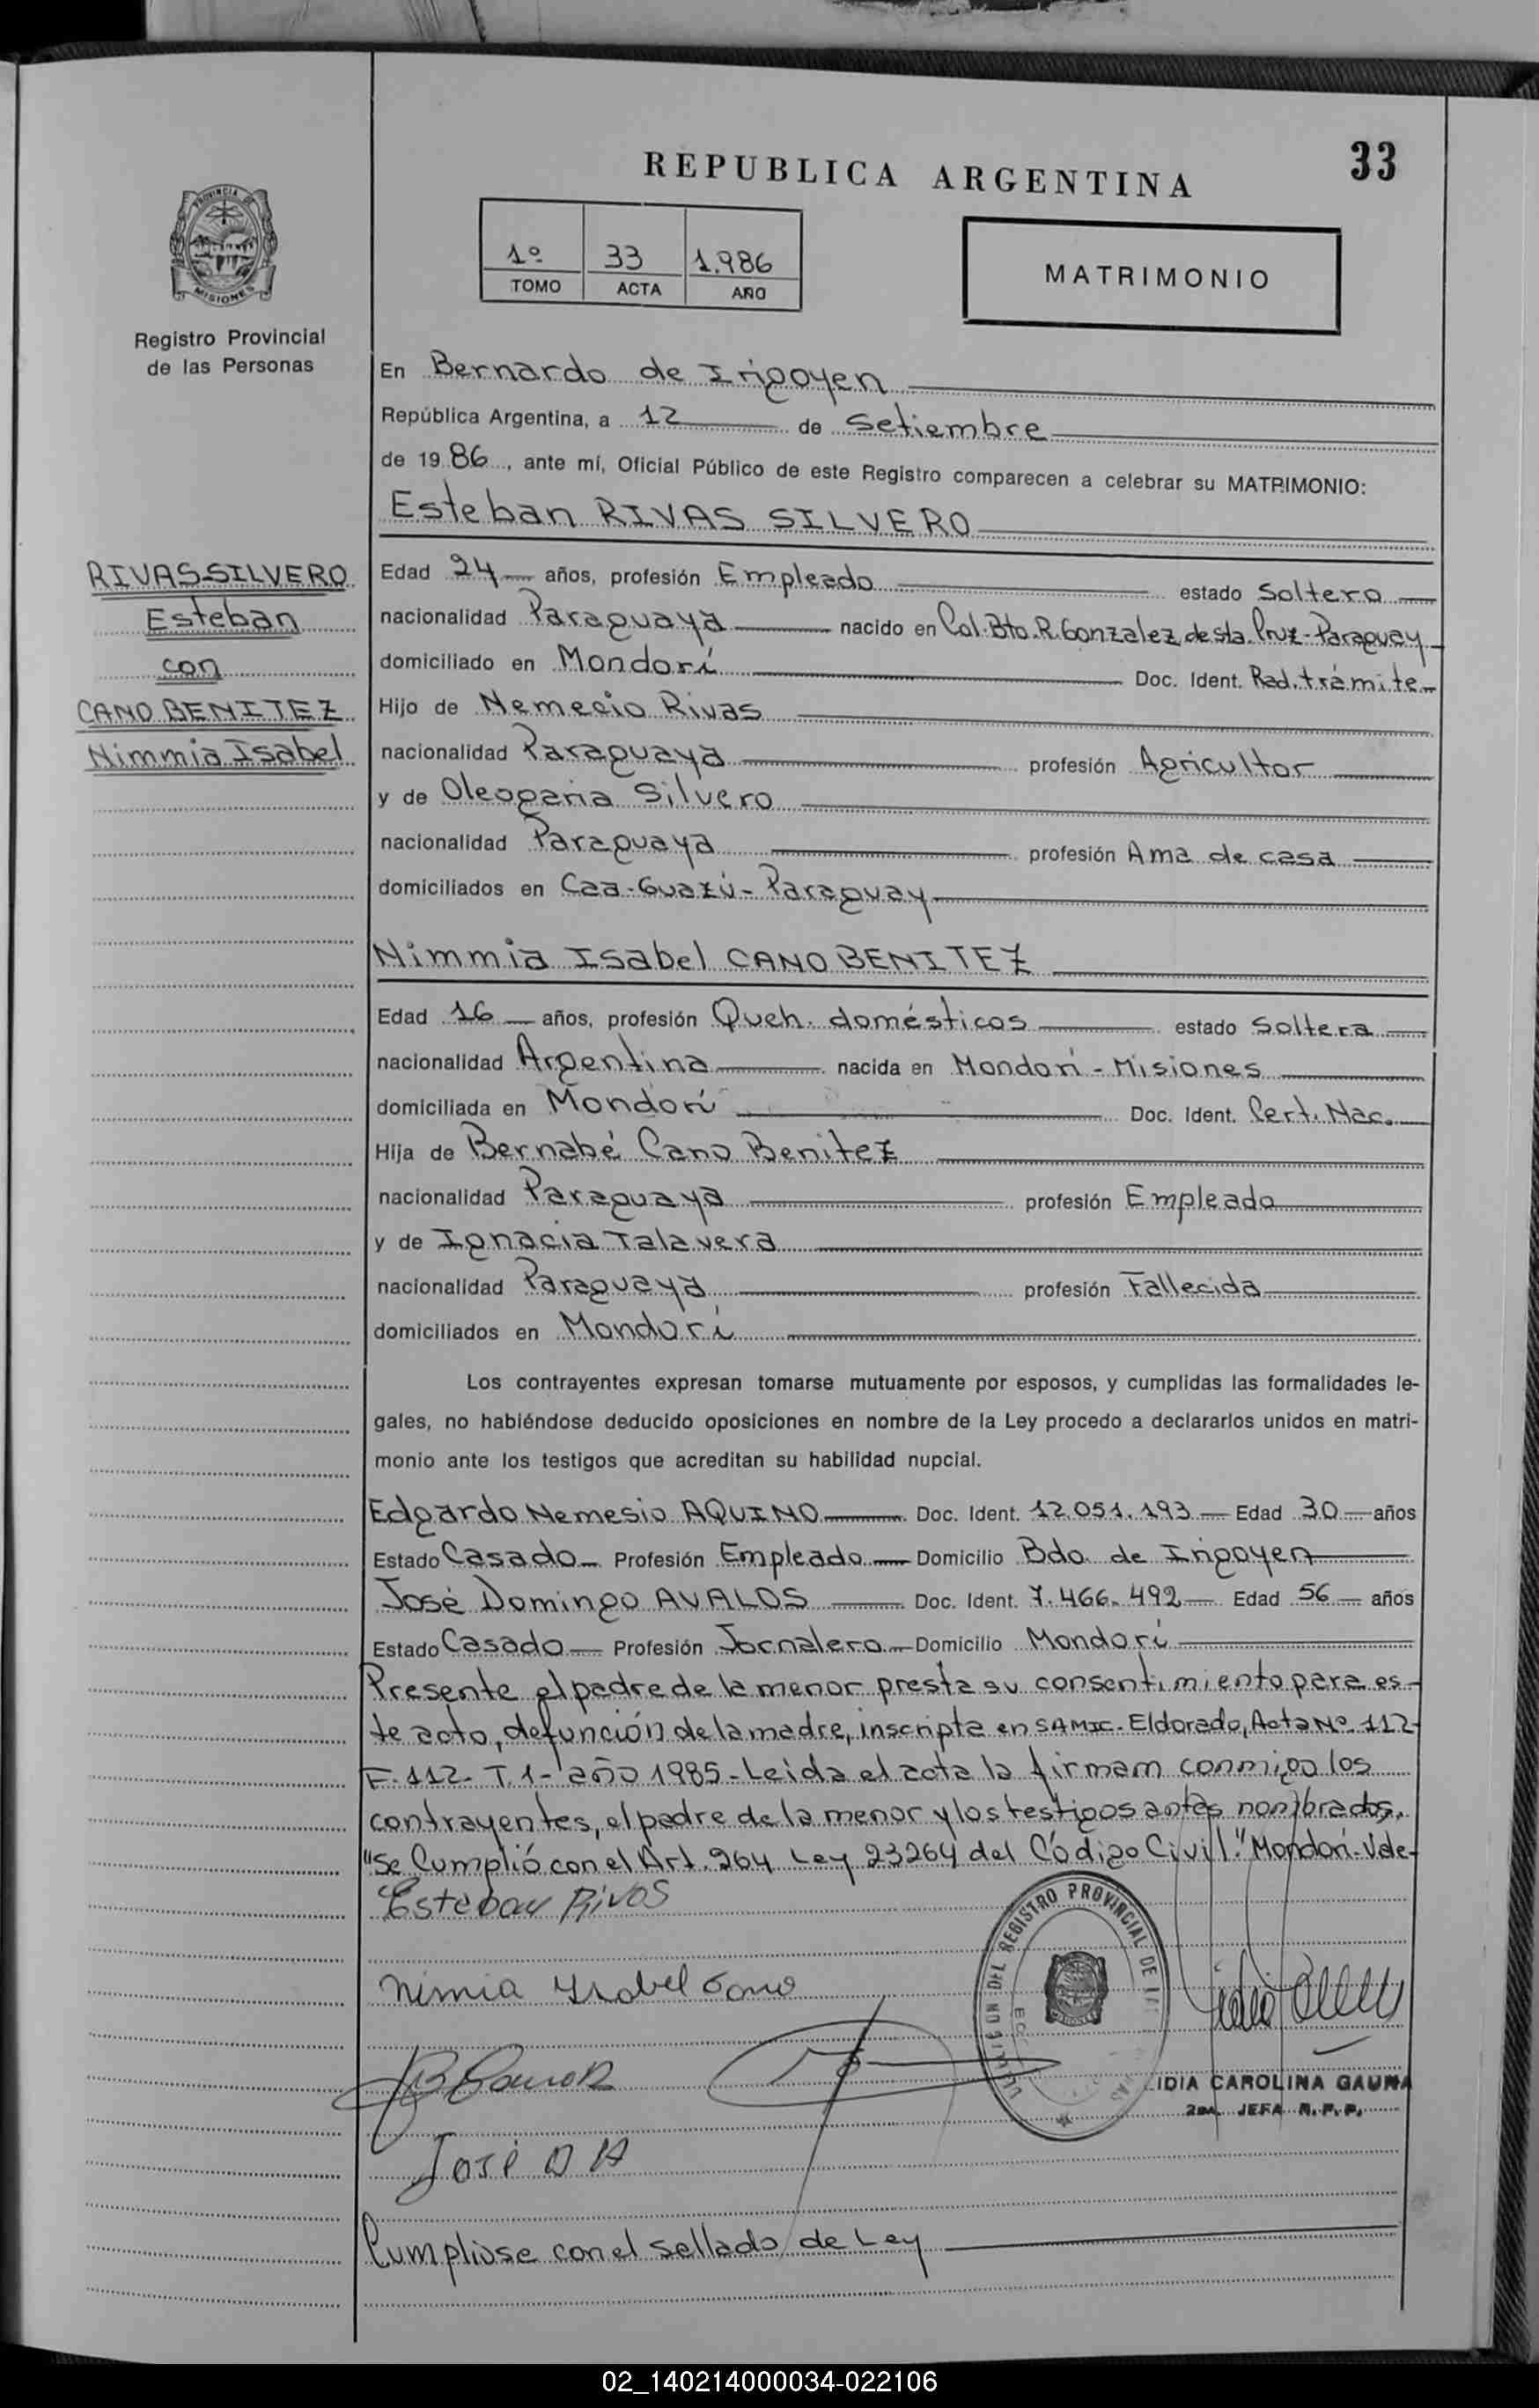 33
REPUBLICA ARGENTINA
PROVINCIA DE
MISIONES
Registro Provincial
de las Personas
1º 33 1.986
TOMO ACTA AÑO
MATRIMONIO
En Bernardo de Irigoyen
República Argentina, a 12 de Setiembre
de 19 86, ante mí, Oficial Público de este Registro comparecen a celebrar su MATRIMONIO:
Esteban RIVAS SILVERO
RIVAS-SILVERO
Esteban
con
CANO BENITEZ
Nimmia Isabel
Edad 24 años, profesión Empleado estado Soltero
nacionalidad Paraguaya nacido en Col. Bto. R. Gonzalez de sta. Cruz - Paraguay
domiciliado en Mondorí Doc. Ident. Rad. trámite
Hijo de Nemecio Rivas
nacionalidad Paraguaya profesión Agricultor
y de Oleogaria Silvero
nacionalidad Paraguaya profesión Ama de casa
domiciliados en Caa-Guazú - Paraguay
Nimmia Isabel CANO BENITEZ
Edad 16 años, profesión Queh. domésticos estado Soltera
nacionalidad Argentina nacida en Mondorí - Misiones
domiciliada en Mondorí Doc. Ident. Cert. Nac.
Hija de Bernabé Cano Benitez
nacionalidad Paraguaya profesión Empleado
y de Ignacia Talavera
nacionalidad Paraguaya profesión Fallecida
domiciliados en Mondorí
Los contrayentes expresan tomarse mutuamente por esposos, y cumplidas las formalidades le-
gales, no habiéndose deducido oposiciones en nombre de la Ley procedo a declararlos unidos en matri-
monio ante los testigos que acreditan su habilidad nupcial.
Edgardo Nemesio AQUINO Doc. Ident. 12.051.193 Edad 30 años
Estado Casado Profesión Empleado Domicilio Bdo. de Irigoyen
José Domingo AVALOS Doc. Ident. 7.466.492 Edad 56 años
Estado Casado Profesión Jornalero Domicilio Mondorí
Presente el padre de la menor presta su consentimiento para es-
te acto, defunción de la madre, inscripta en SAMIC - Eldorado, Acta Nº 112-
F. 112 - T. 1 - año 1985 - Leida el acta la firmam conmigo los
contrayentes, el padre de la menor y los testigos antes nombrados.
"Se Cumplió con el Art. 264 Ley 23264 del Código Civil." Mondorí - Vale-
Esteban Rivas
Nimia Ysabel Cano
REGISTRO PROVINCIAL DE
LIDIA CAROLINA GAUNA
2da. JEFA R.P.P.
José D A
Cumplióse con el sellado de Ley
02_140214000034-022106